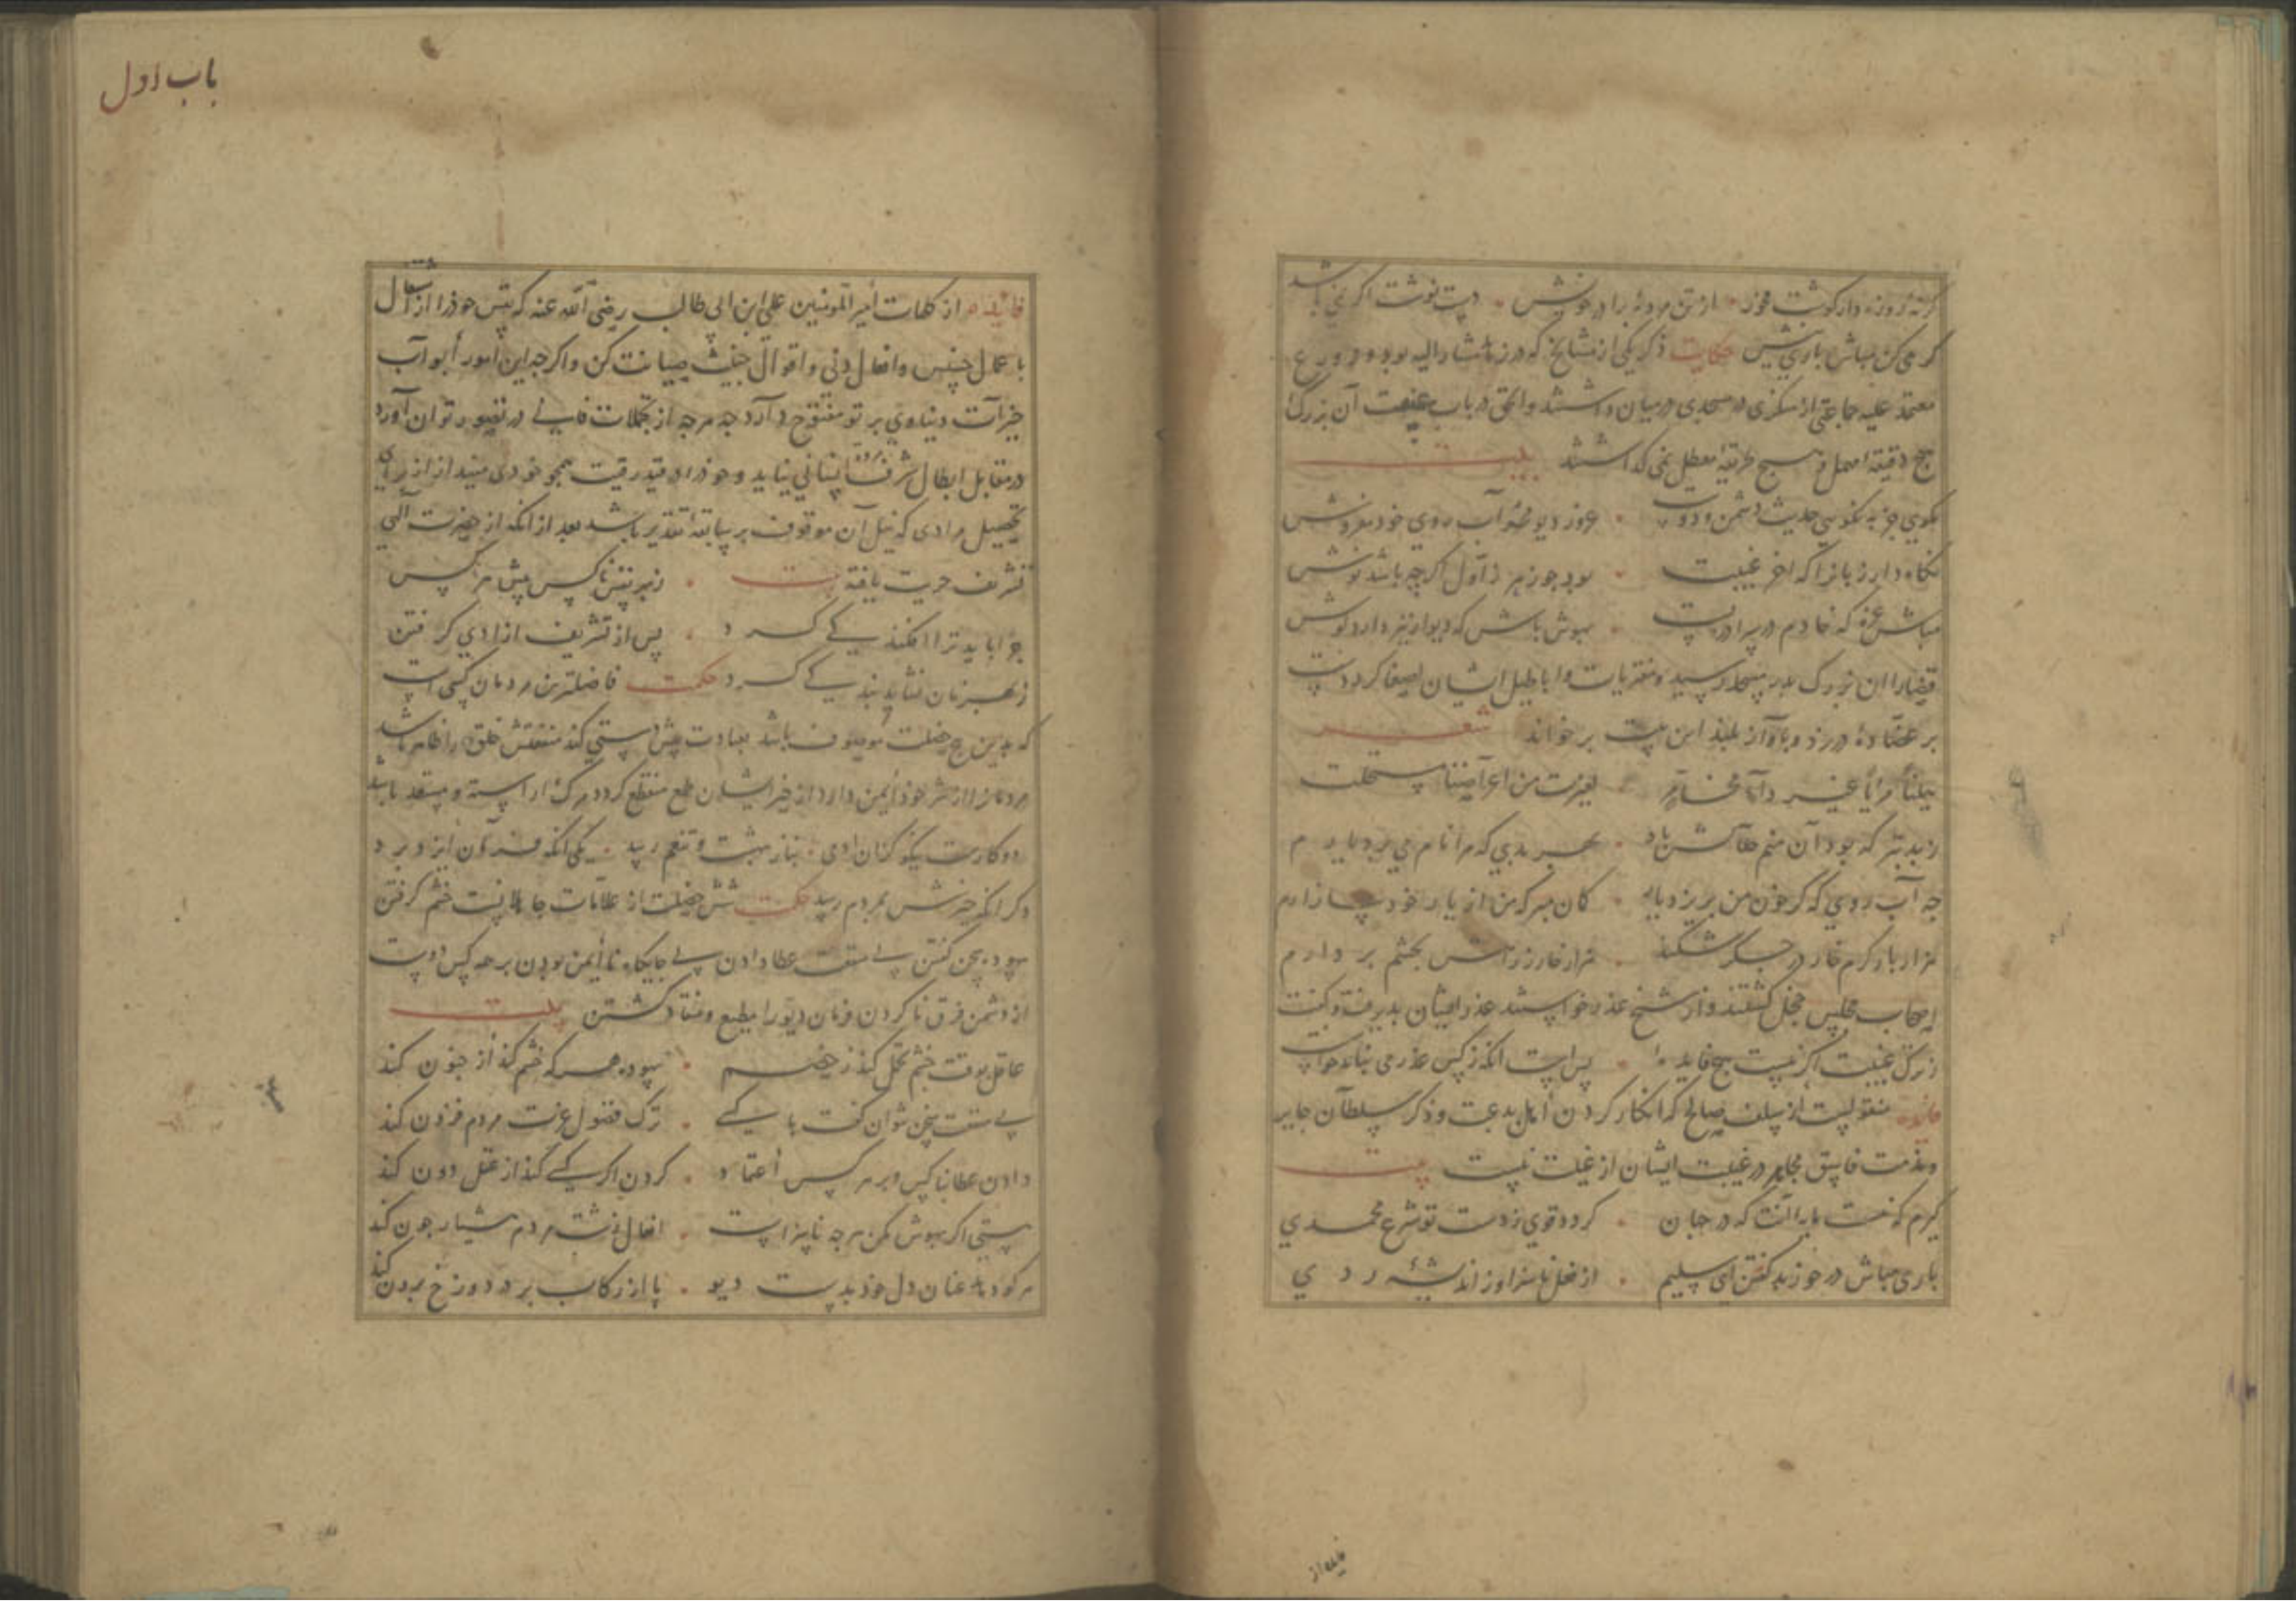 گرنهٔ روزه دار گوشت مخور . از تن مردهٔ برادر خویش . دست نوشت اگر نمی باشد
گر می کن مباش باری نیش حکایت ذکر یکی از مشایخ که در زهد مشار الیه بود و در ورع
معتمد علیه جماعتی از منکری در مسجدی در میان داشتند والحق در باب غیبت آن بزرگ
هیچ دقیقه مهمل و هیچ طریقه معطل نمی گذاشتند بیت
مگوی جز به نکویی حدیث دشمن و دوست . غرور دیو مخر آب روی خود مفروش
نگاه دار زبانرا که اخر غیبت . بود چو زهر ز اول اگر چه باشد نوش
مباش غره که خادم در سراورست . بهوش باش که دیوار نیز دارد گوش
قضا را ان بزرگ بدر مسجد رسید و مفتریات و اباطیل ایشان اصغا کرد دست
بر عضاده در زد و باواز بلند این بیت بر خواند شعر
هنیئا مریئا غیر داء مخامر . لعزت من اعراضنا ما استحلت
ز بد بتر که بود آن منم هلاکش باد . بهر بدی که مرا نام می برد یارم
چه آب روی که گر خون من بریزد یار . گمان مبر که من از یار خود بیازارم
هزار بار گرم خار در جگر شکند . هزار خار ز راهش بچشم بر دارم
اصحاب مجلس خجل گشتند و از شیخ عذر خواستند عذر ایشان بپذیرفت و گفت
ز ترک غیبت اگر نیست هیچ فایده . پس است انکه ز کس عذر می نباید خواست
فایده منقولست از سلف صالح که انکار کردن اهل بدعت و ذکر سلطان جایر
و مذمت فاسق مجاهر در غیبت ایشان از غیبت نیست بیت
گیرم که نیست یارانت که در جهان . گردد قوی ز دست تو شرع محمدی
باری مباش در خور بد گفتن ای سلیم . از فعل ناسزا و ز اندیشهٔ ردی
فیلده از
باب اول
فایده از کلمات امیر المومنین علی ابن ابی طالب رضی الله عنه که نفس خود را از اشتغال
با عمال خسیس و افعال دنی و اقوال خبیث صیانت کن و اگر چه این امور ابواب
خیرات دنیاوی بر تو مفتوح دارد چه هر چه از تجملات فانی در تصور توان آورد
در مقابل ابطال شرف انسانی نیاید و خود را در قید رقیت همچو خودی مینداز از برای
تحصیل مرادی که نیل آن موقوف بر سابقهٔ تقدیر باشد بعد از انکه از حضرت الهی
تشریف حریت یافتهٔ بیت . زبهر نفس ناکس پیش هر کس
چرا باید ترا افکندگی کرد . پس از تشریف ازادی گرفتن
ز بهر نان نشاید بندگی کرد حکمت فاضلترین مردمان کسی است
که بدین پنج خصلت موصوف باشد بعبادت پیش دستی کند منفعتش خلق را ظاهر باشد
مردمانرا از شر خود ایمن دارد از خیر ایشان طمع منقطع گرداند مرگ را راسته و مستعد باشد
دو کارست نیکو کزان ادمی . بناز بهشت و تنعم رسد . یکی انکه فرمان ایزد برد
دگر انکه خیرش بمردم رسد حکمت شش خصلت از علامات جاهلانست خشم گرفتن
بیهوده سخن گفتن بی منفعت عطا دادن بی جایگاه نا ایمن بودن بر هر کس دوست
از دشمن فرق ناکردن فرمان دیو را مطیع و منقاد گشتن بیت
عاقل بوقت خشم تحمل کند ز خصم . بیهوده هر که خشم کند از جنون کند
بی منفعت سخن نتوان گفت با کسی . ترک فضول عزت مردم فزون کند
دادن عطا بناکس و بر هر کس اعتماد . کردن اگر کسی کند از عقل دون کند
مستی اگر بهوش مکن هر چه ناسزاست . افعال زشت مردم هشیار چون کند
هر کو دهد عنان دل خود بدست دیو . پا از رکاب برد دوزخ برون کند